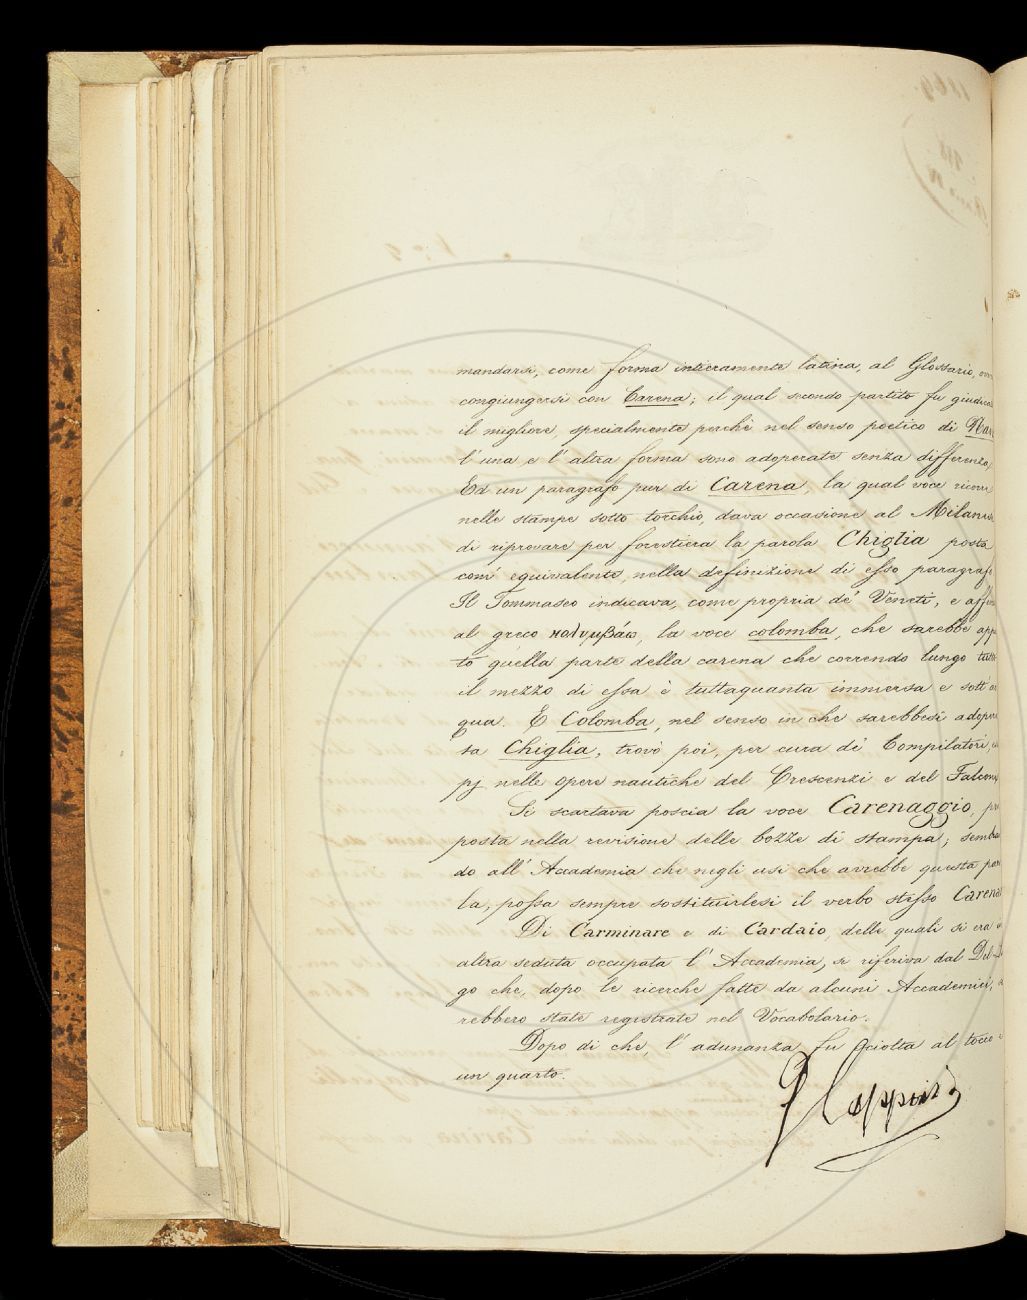 mandarsi, come forma intieramente latina, al Glossario,
congiungersi con Carena; il qual secondo partito fu giudica
il migliore, specialmente perchè nel senso poetico di Nav
l'una e l'altra forma sono adoperate senza differenza,
Ed un paragrafo pur di Carena, la qual voce ricorr
nelle stampe sotto torchio, dava occasione al Milanes
di riprovare per forestiera la parola Chiglia posta,
com' equivalente, nella definizione di esso paragrafo
Il Tommaseo indicava, come propria de' Veneti, e affin
al greco κολυμβάω, la voce colomba, che sarebbe app
to quella parte della carena che correndo lungo tutto
il mezzo di essa è tuttaquanta immersa e sott' ac
qua. E Colomba, nel senso in che sarebbesi adoper
ta Chiglia, trovò poi, per cura de' Compilatori,
pj nelle opere nautiche del Crescenzi e del Falcon
Si scartava poscia la voce Carenaggio, pro
posta nella revisione delle bozze di stampa; sembra
do all' Accademia che negli usi che avrebbe questa paro
la, possa sempre sostituirlesi il verbo stesso Carena
Di Carminare e di Cardaio, delle quali si era
altra seduta occupata l' Accademia, si riferiva dal Del
go che, dopo le ricerche fatte da alcuni Accademici,
rebbero state registrate nel Vocabolario.
Dopo di che, l' adunanza fu sciolta al tocco e
un quarto.